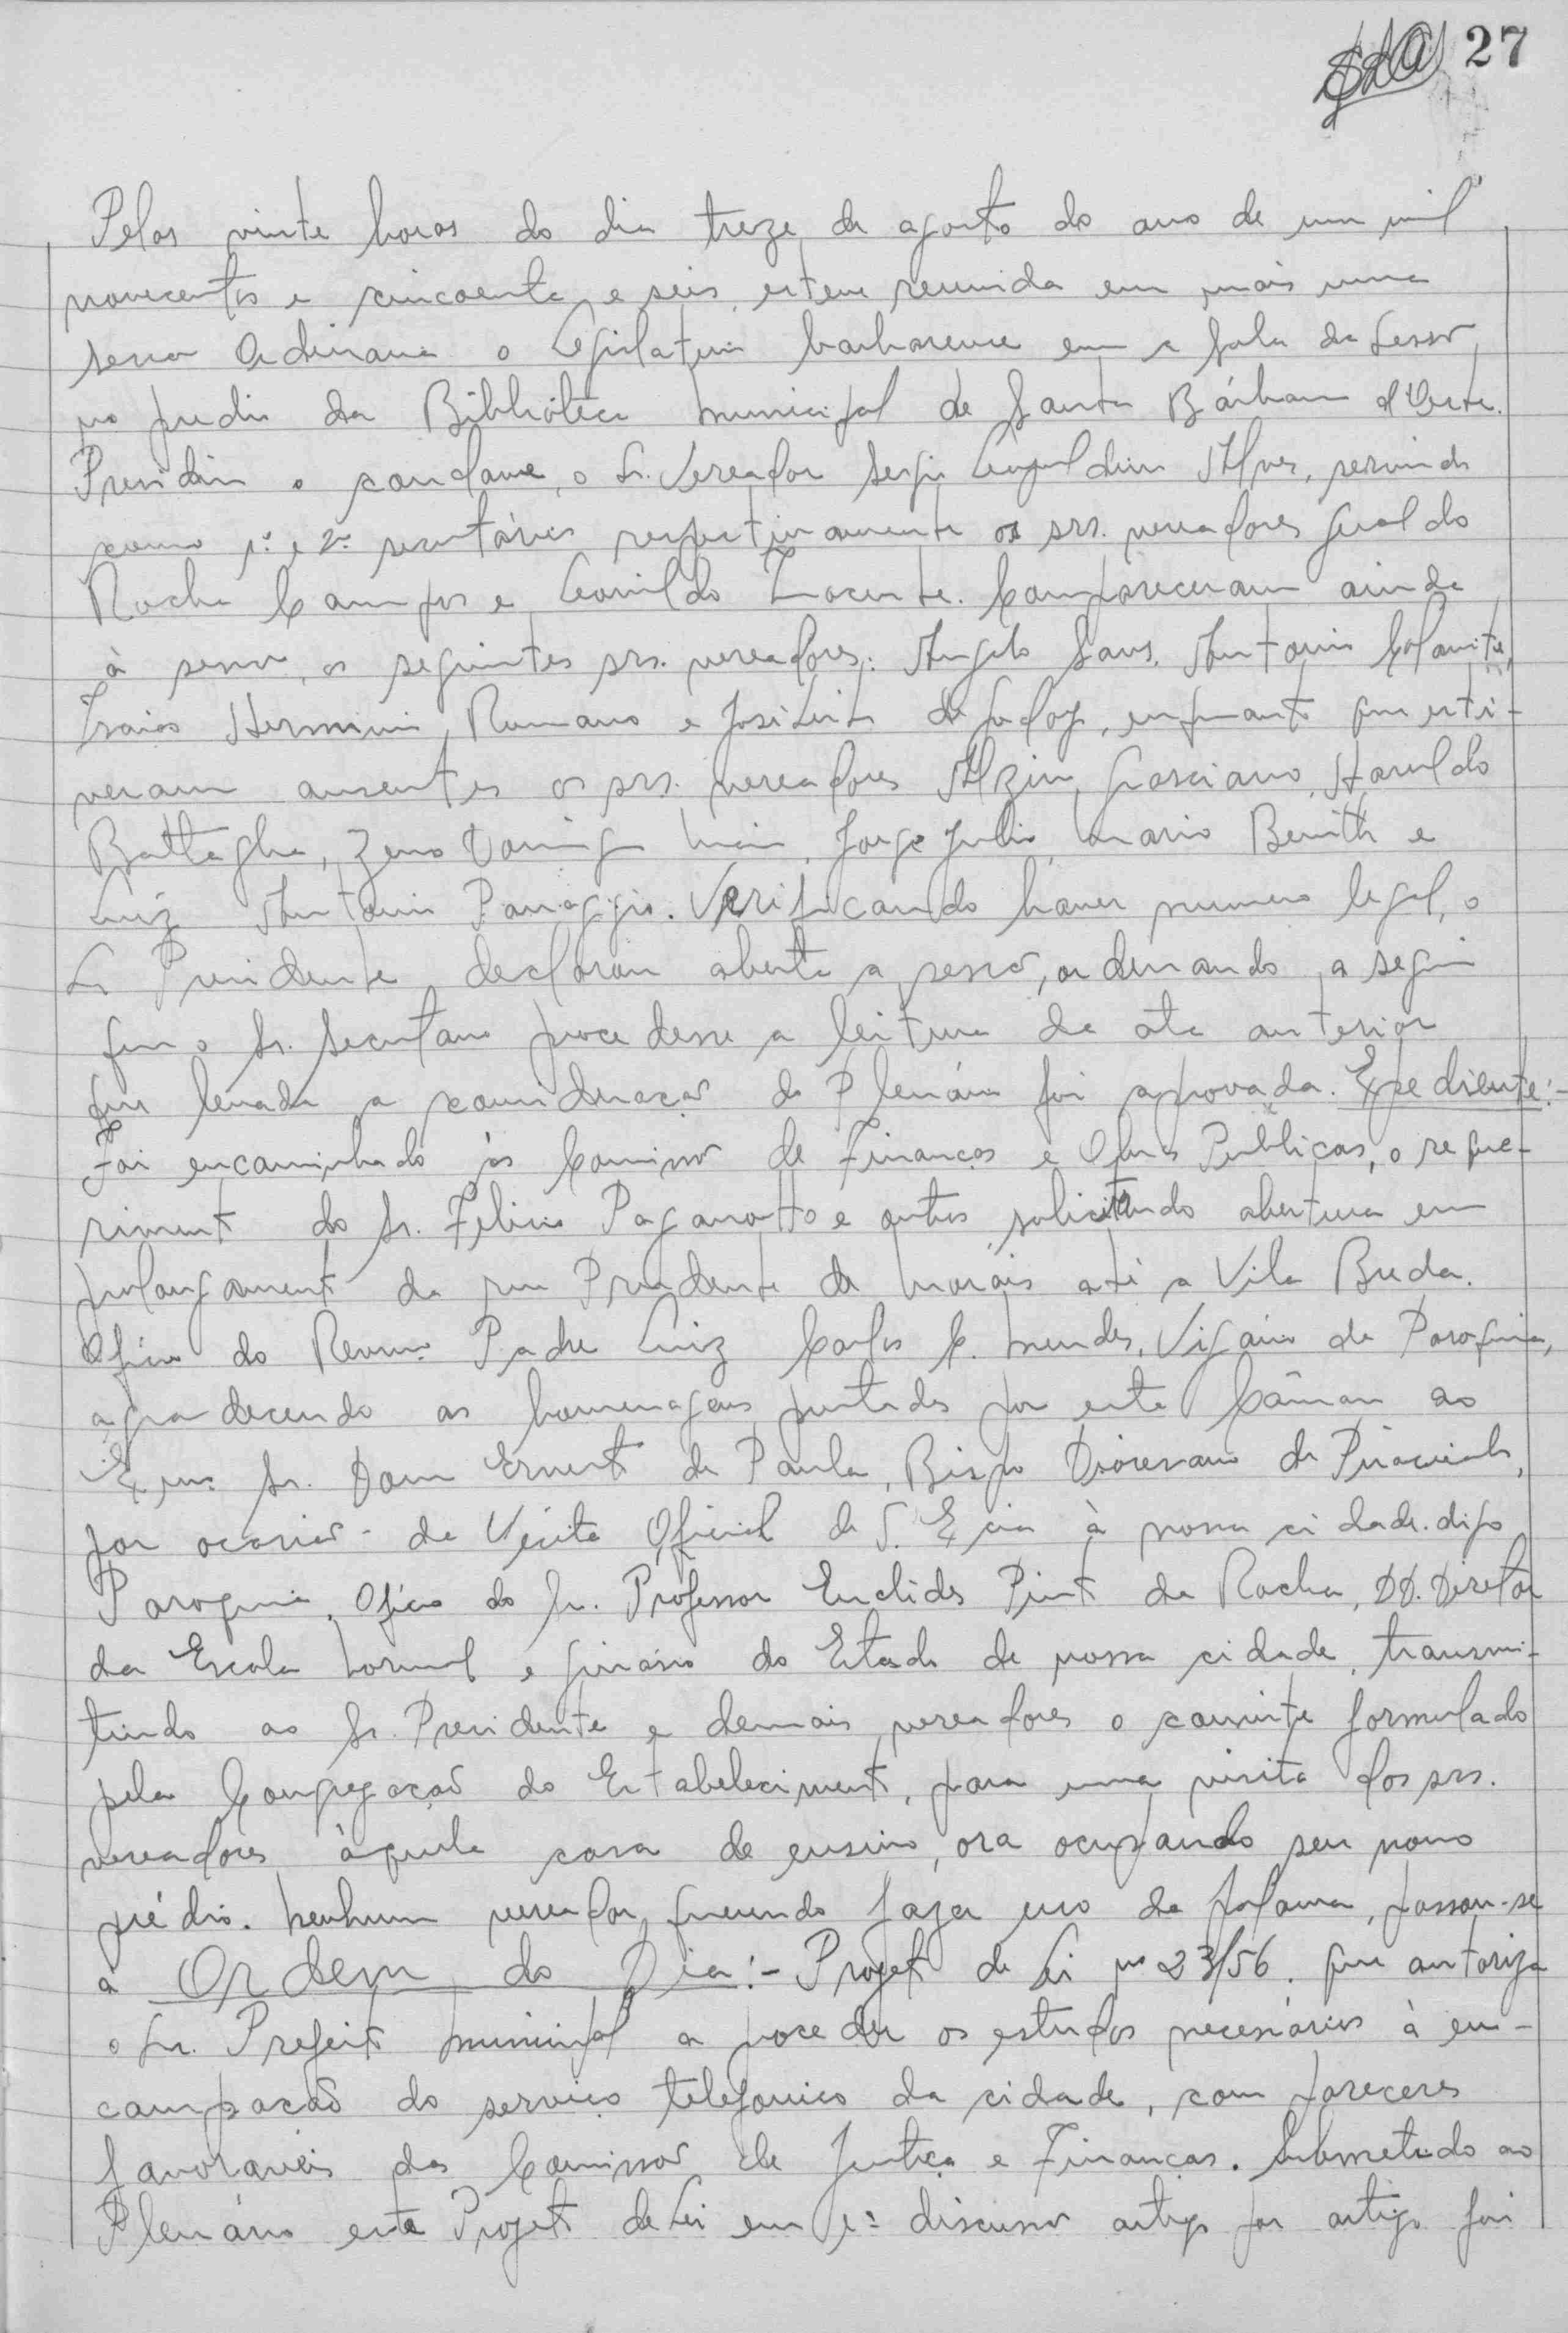 27
Pelas vinte horas do dia treze de agosto do ano de um mil
novecentos e cincoenta e seis, esteve reunida em mais uma
sessão Ordinaria o Legislativo barbarense em a sala da Sessão,
no predio da Bibliotéca Municipal de Santa Bárbara d'Oeste.
Presidiu o conclave, o Sr. Vereador Sergio Leopoldino Alves, servindo
como 1º e 2º secretários respectivamente os srs. vereadores Geraldo
Rocha Campos e Leonildo Inocente. Compareceram ainda
à sessão, os seguintes srs. vereadores: Angelo Sans, Antonio
Isaias Herminio Romano e José Leite de Godoy, enquanto que esti-
veram ausentes os srs. vereadores Alziro Graciano, Haroldo
Battaglia, Zeno Maia, Jorge Julio, Mario Benith e
Luiz Antonio Panaggio. Verificando haver numero legal, o
Sr Presidente declarou aberta a sessão, ordenando a seguir
que o Sr. Secretario procedesse a leitura da ata anterior
que levada a consideração do Plenário foi aprovada. Expediente:-
Foi encaminhado às Comissão de Finanças e Obras Publicas, o reque-
riment do Sr. Felicio Paganotto e outros solicitando abertura em
prolongament da rua Prudente de Moráis até a Vila Breda.
Oficio do Revmo. Padre Luiz Carlos C. Mendes, Vigário da Paroquia,
agradecendo as homenagens prestadas por esta Câmara ao
Exmo. Sr. Dom Ernest de Paula, Bispo Diocesano de Piracicaba,
por ocasião - da Visita Oficial de S. Excia à nossa cidade. digo
Paroquia. Oficio do Sr. Professor Euclides Pint da Rocha, DD. Diretor
da Escola Normal e ginásio do Estado de nossa cidade, transmi-
tindo ao Sr. Presidente e demais vereadores o convite formulado
pela Congregação do Estabeleciment, para uma visita dos srs.
vereadores àquela casa de ensino, ora ocupando seu novo
prédio. Nenhum vereador querendo fazer uso da palavra, passou-se
a Ordem do Dia:- Projet de Lei nº 23/56. que autoriza
o Sr. Prefeit Municipal a proceder os estudos necessários à en-
campação do serviço telefonico da cidade, com pareceres
favoraveis das Comissão de Justiça e Finanças. Submetido ao
Plenário este Projet de Lei em 1ª discussão artigo por artigo foi